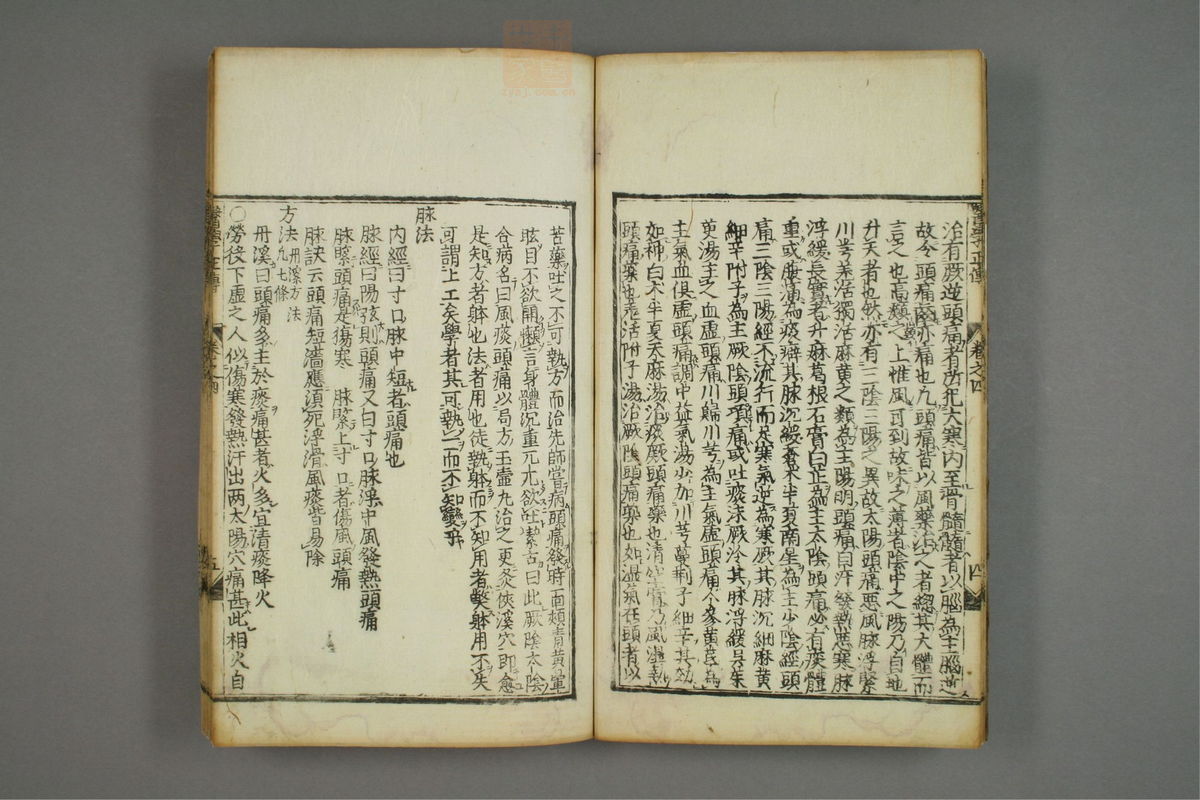 治有厥逆頭痛者所犯大寒内至骨髓髓者以腦為主腦逆
故令頭痛齒亦痛也凡頭痛皆以風藥治之者總其大體而
言之也高巔之上惟風可到故味之薄者陰中之陽乃自地
升天者也然亦有三陰三陽之異故太陽頭痛惡風脉浮緊
川芎羌活獨活麻黄之類為主陽明頭痛自汗發熱惡寒脉
浮緩長實者升麻葛根石膏白芷為主太陰頭痛必有痰體
重或腹痛為痰癖其脉沉緩蒼术半夏南星為主少陰經頭
痛三陰三陽經不流行而足寒氣逆為寒厥其脉沉細麻黄
細辛附子為主厥陰頭項痛或吐痰沫厥冷其脉浮緩吴茱
萸湯主之血虚頭痛川歸川芎為主氣虚頭痛人參黄芪為
主氣血俱虚頭痛調中益氣湯少加川芎蔓荆子細辛其効
如神白术半夏天麻湯治痰厥頭痛藥也清空膏乃風濕熱
頭痛藥也羌活附子湯治厥陰頭痛藥也如濕氣在頭者以
四
苦藥吐之不可執方而治先師嘗病頭痛發時面頰青黄暈
眩目不欲開懶言身體沉重兀兀欲吐潔古曰此厥陰太陰
合病名曰風痰頭痛以局方玉壷丸治之更灸俠溪穴即愈
是知方者躰也法者用也徒執躰而不知用者弊躰用不失
可謂上工矣學者其可執一而不知變乎
脉法
内經曰寸口脉中短者頭痛也
脉經曰陽弦則頭痛又曰寸口脉浮中風發熱頭痛
脉緊頭痛是傷寒 脉緊上寸口者傷風頭痛
脉訣云頭痛短濇應須死浮滑風痰皆易除
方法 丹溪方法凡七條
丹溪曰頭痛多主於痰痛甚者火多宜清痰降火
○勞役下虚之人似傷寒發熱汗出两太陽穴痛甚此相火自
醫學正傳 卷之四 五